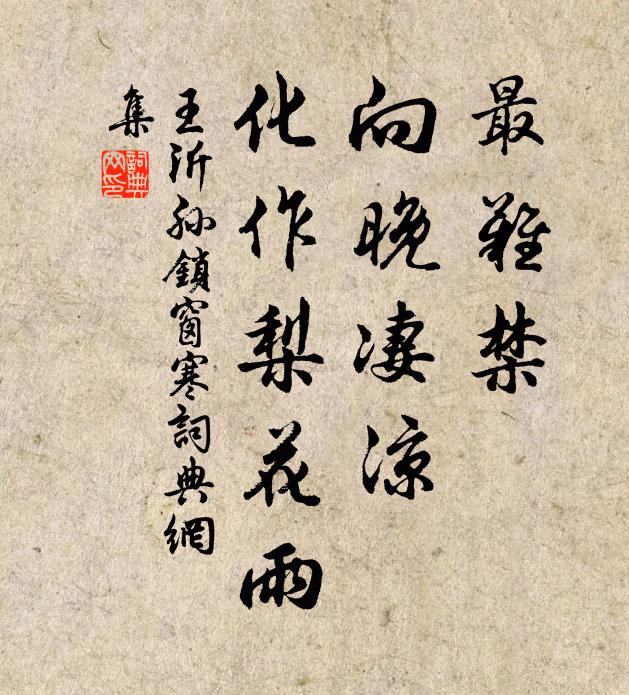 最難禁
向晚凄涼
化作梨花雨
王沂孙鎖窗寒詞典網
集
詞典
网印